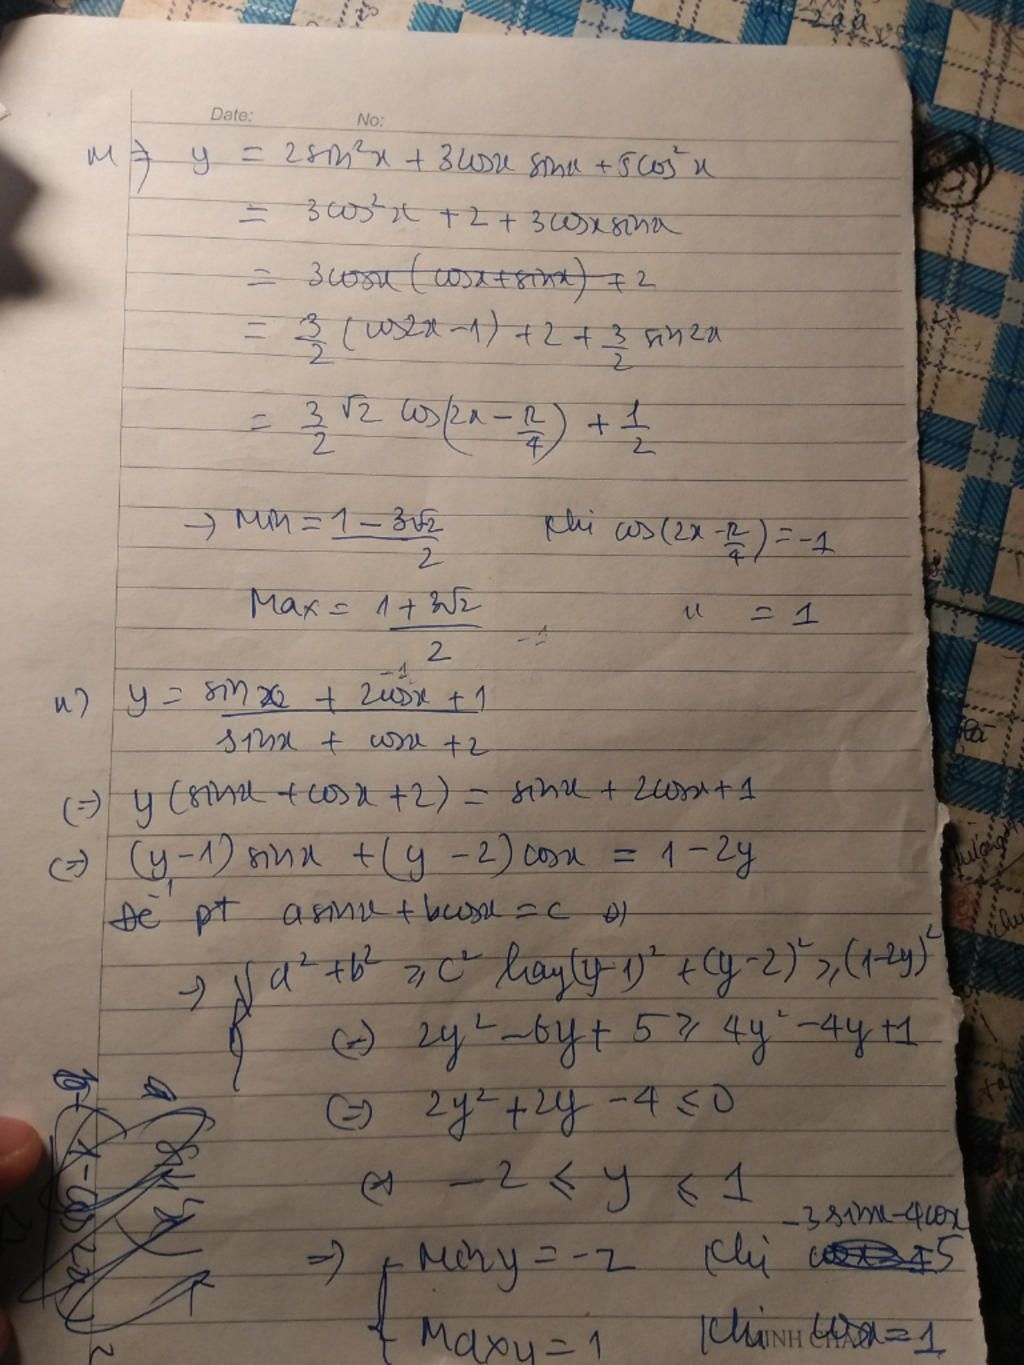 Date: No:
m) y = 2sin²x + 3cosx sinx + 5cos²x
= 3cos²x + 2 + 3cosxsinx
= 3cosx (cosx+sinx) + 2
= 3/2 (cos2x-1) + 2 + 3/2 sin2x
= 3/2 √2 cos(2x - π/4) + 1/2
→ Min = (1 - 3√2)/2 Khi cos(2x - π/4) = -1
Max = (1 + 3√2)/2 " = 1
n) y = (sinx + 2cosx + 1)/(sinx + cosx + 2)
(=) y(sinx + cosx + 2) = sinx + 2cosx + 1
(=) (y-1) sinx + (y-2) cosx = 1-2y
Để pt asinx + bcosx = c
→ { a² + b² ≥ c² hay (y-1)² + (y-2)² ≥ (1-2y)²
(=) 2y² - 6y + 5 ≥ 4y² - 4y + 1
(=) 2y² + 2y - 4 ≤ 0
(=) -2 ≤ y ≤ 1
=) { Min y = -2 Khi -3sinx - 4cosx = 5
Max y = 1 Khi cosx = 1